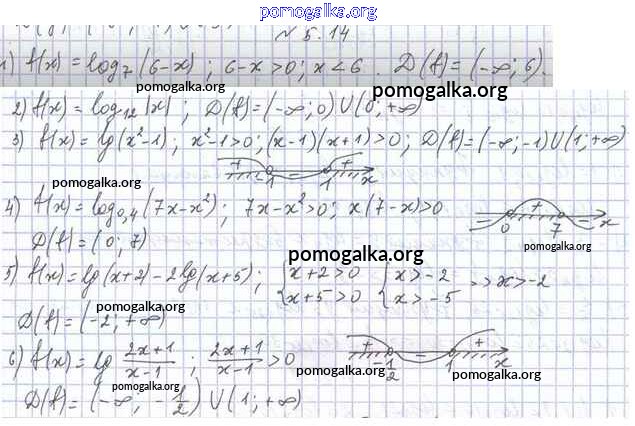 pomogalka.org
№ 5.14
1) f(x) = log₇(6-x); 6-x>0; x<6. D(f)=(-∞; 6).
pomogalka.org
pomogalka.org
2) f(x) = log₁₂|x|; D(f)=(-∞; 0)∪(0; +∞)
pomogalka.org
3) f(x) = lg(x²-1); x²-1>0; (x-1)(x+1)>0; D(f)=(-∞; -1)∪(1; +∞)
+ - + -1 1 x
pomogalka.org
pomogalka.org
4) f(x) = log₀,₄(7x-x²); 7x-x²>0; x(7-x)>0
- + - 0 7 x
D(f)=(0; 7)
pomogalka.org
pomogalka.org
5) f(x)=lg(x+2)-2lg(x+5); {x+2>0 {x>-2 => x>-2
{x+5>0 {x>-5
pomogalka.org
D(f)=(-2; +∞)
6) f(x)= lg (2x+1)/(x-1); (2x+1)/(x-1) >0
+ - + -1/2 1 x
pomogalka.org
pomogalka.org
pomogalka.org
D(f)=(-∞; -1/2)∪(1; +∞)